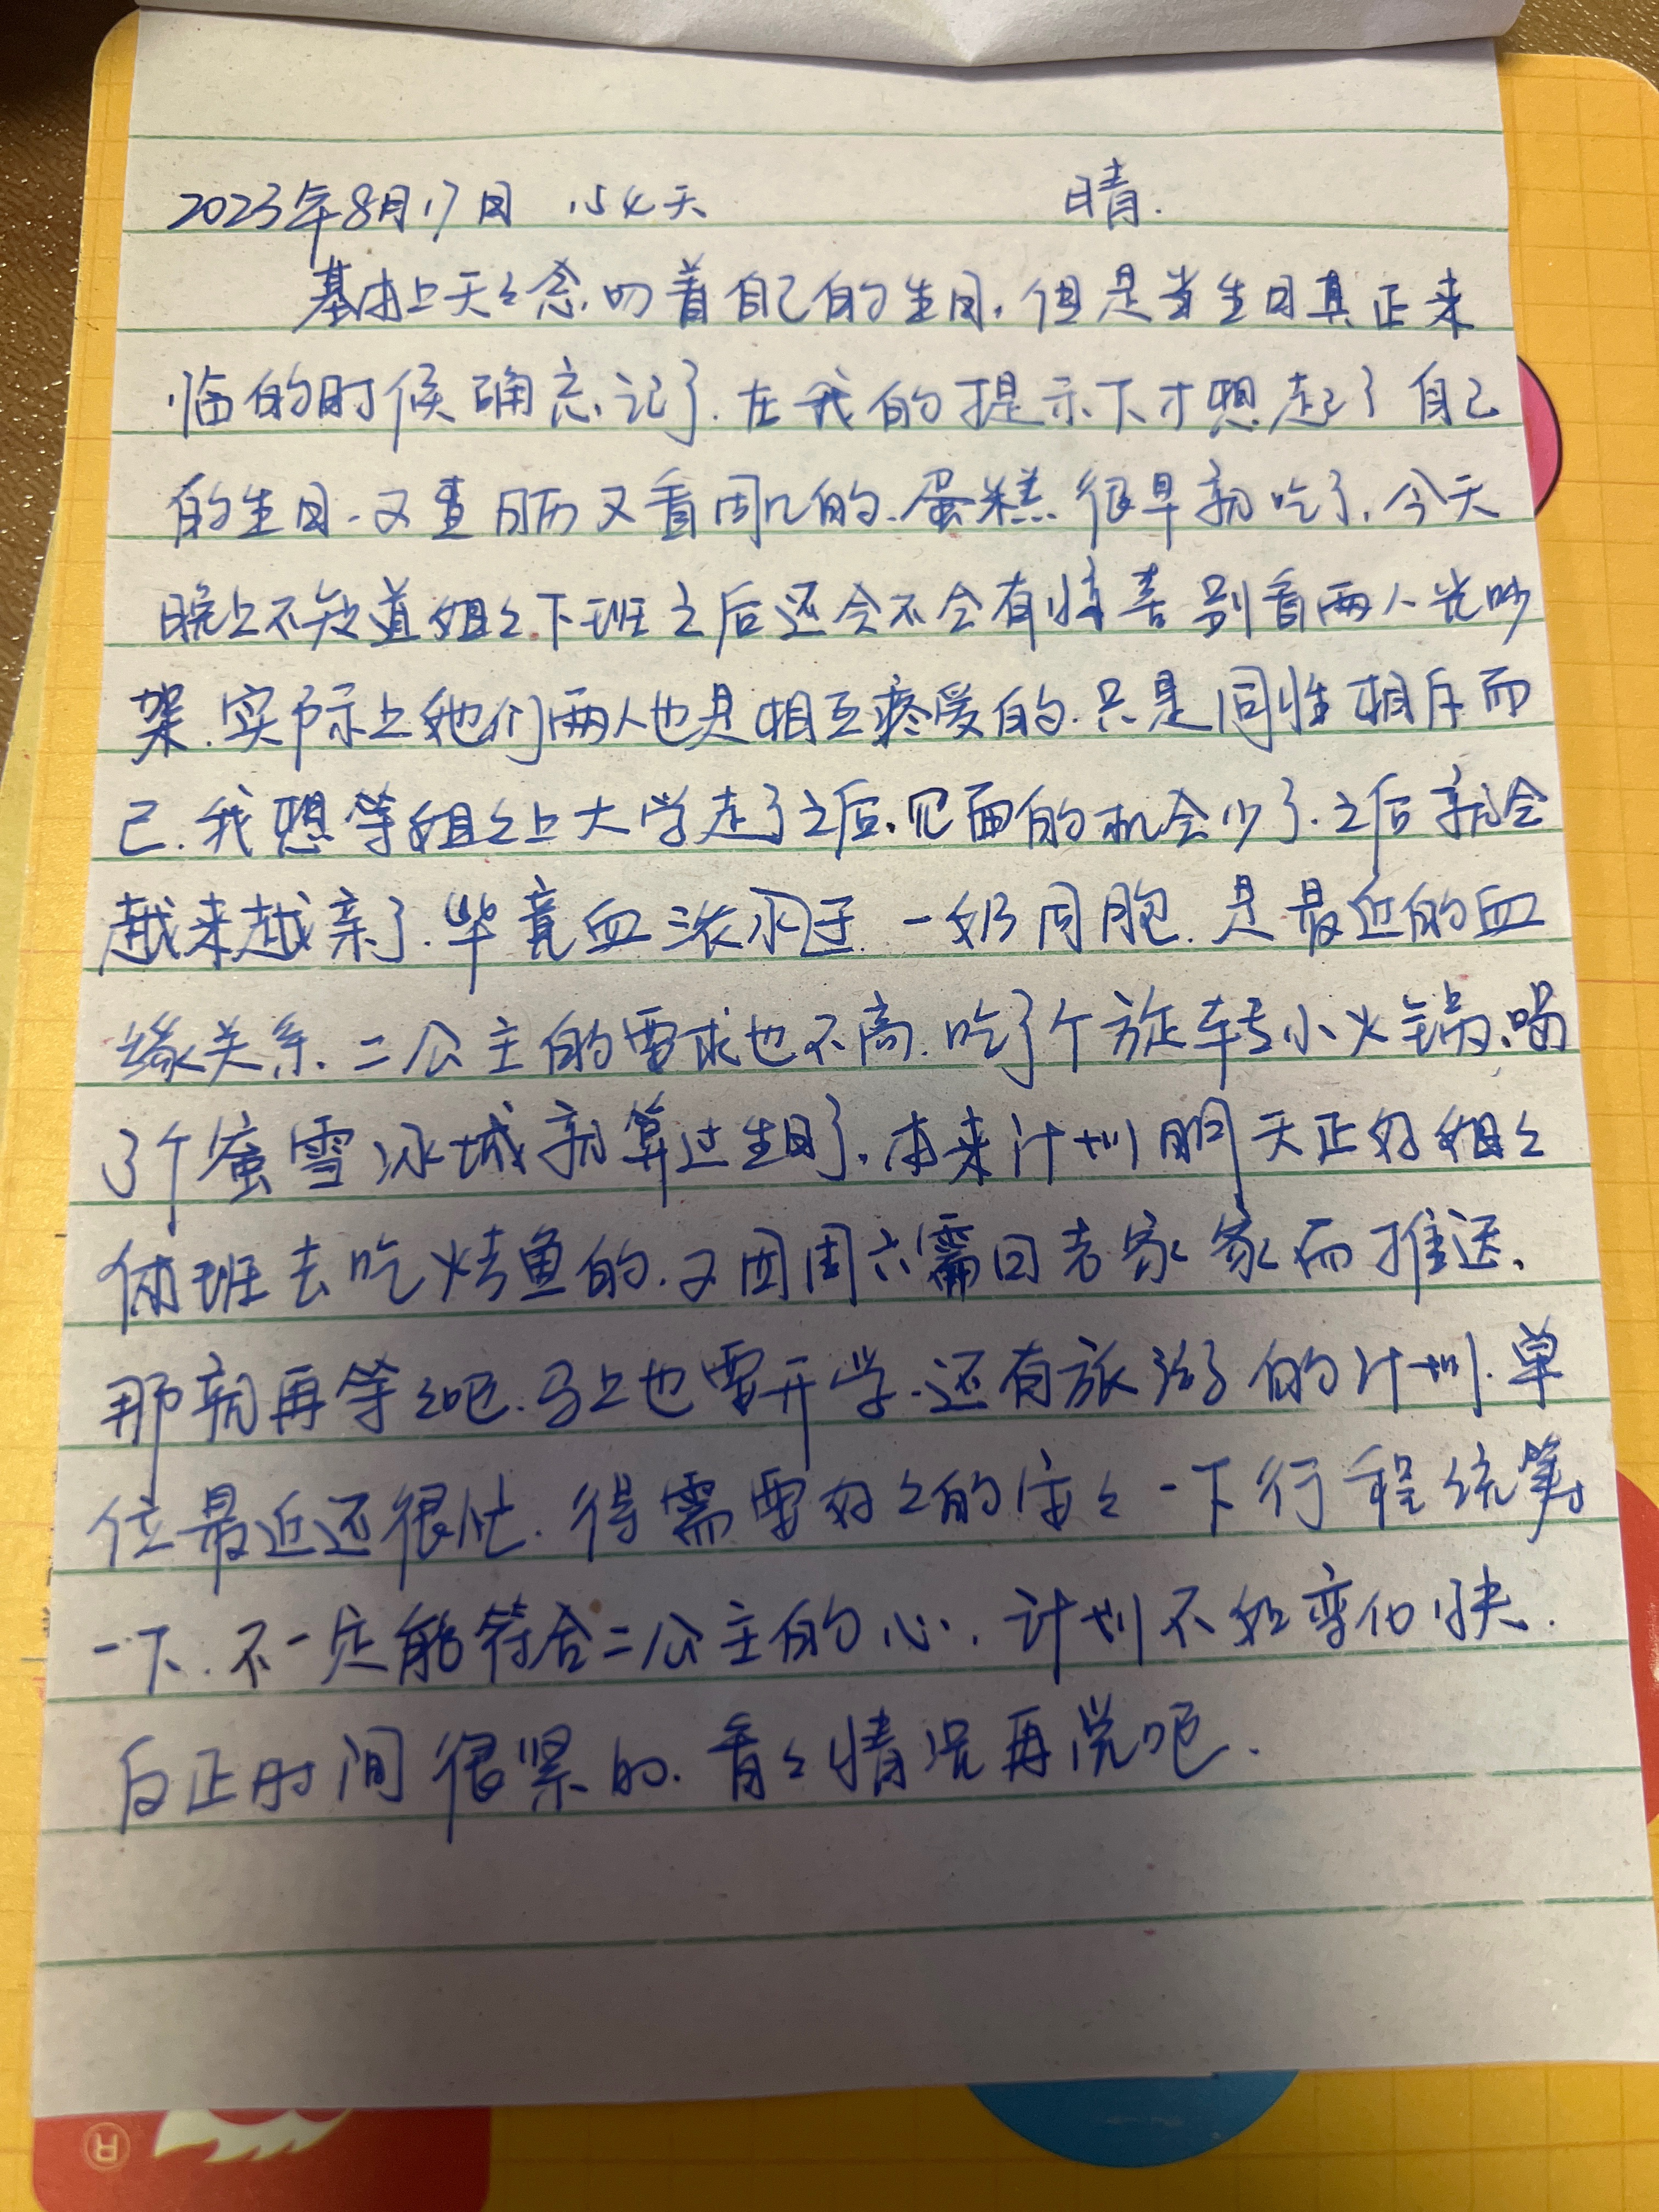 2023年8月17日 154天 晴.
基本上天々念叨着自己的生日.但是当生日真正来
临的时候确忘记了.在我的提示下才想起了自己
的生日.又查阴历又看周几的.蛋糕很早就吃了.今天
晚上不知道姐々下班之后还会不会有惊喜别看两人光吵
架.实际上她们两人也是相互疼爱的.只是同性相斥而
已.我想等姐々上大学走了之后.见面的机会少了.之后就会
越来越亲了.毕竟血浓于水.一奶同胞.是最近的血
缘关系.二公主的要求也不高.吃了个旋转小火锅.喝
了个蜜雪冰城就算过生日了.本来计划明天正好姐々
休班去吃烤鱼的.又因周六需回老家家而推迟.
那就再等々吧.马上也要开学.还有旅游的计划.单
位最近还很忙.得需要好々的安々一下行程统筹
一下.不一定能符合二公主的心.计划不如变化快.
反正时间很紧的.看々情况再说吧.
R